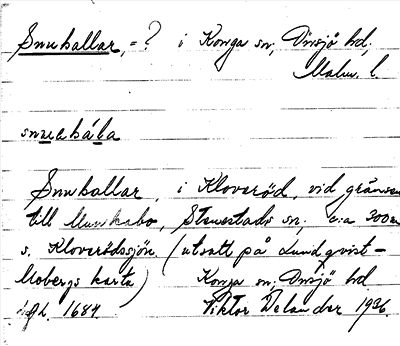 Snuhallar, =? i Konga sn, Onsjö hd,
Malm. l.
snuehála
Snuhallar, i Kloveröd, vid gränsen
till Munkabo, Stenestads sn, c:a 300 m
s. Kloverödssjön. (utsatt på Lundqvist-
Mobergs karta) Konga sn, Onsjö hd
1684. Viktor Delander 1936.